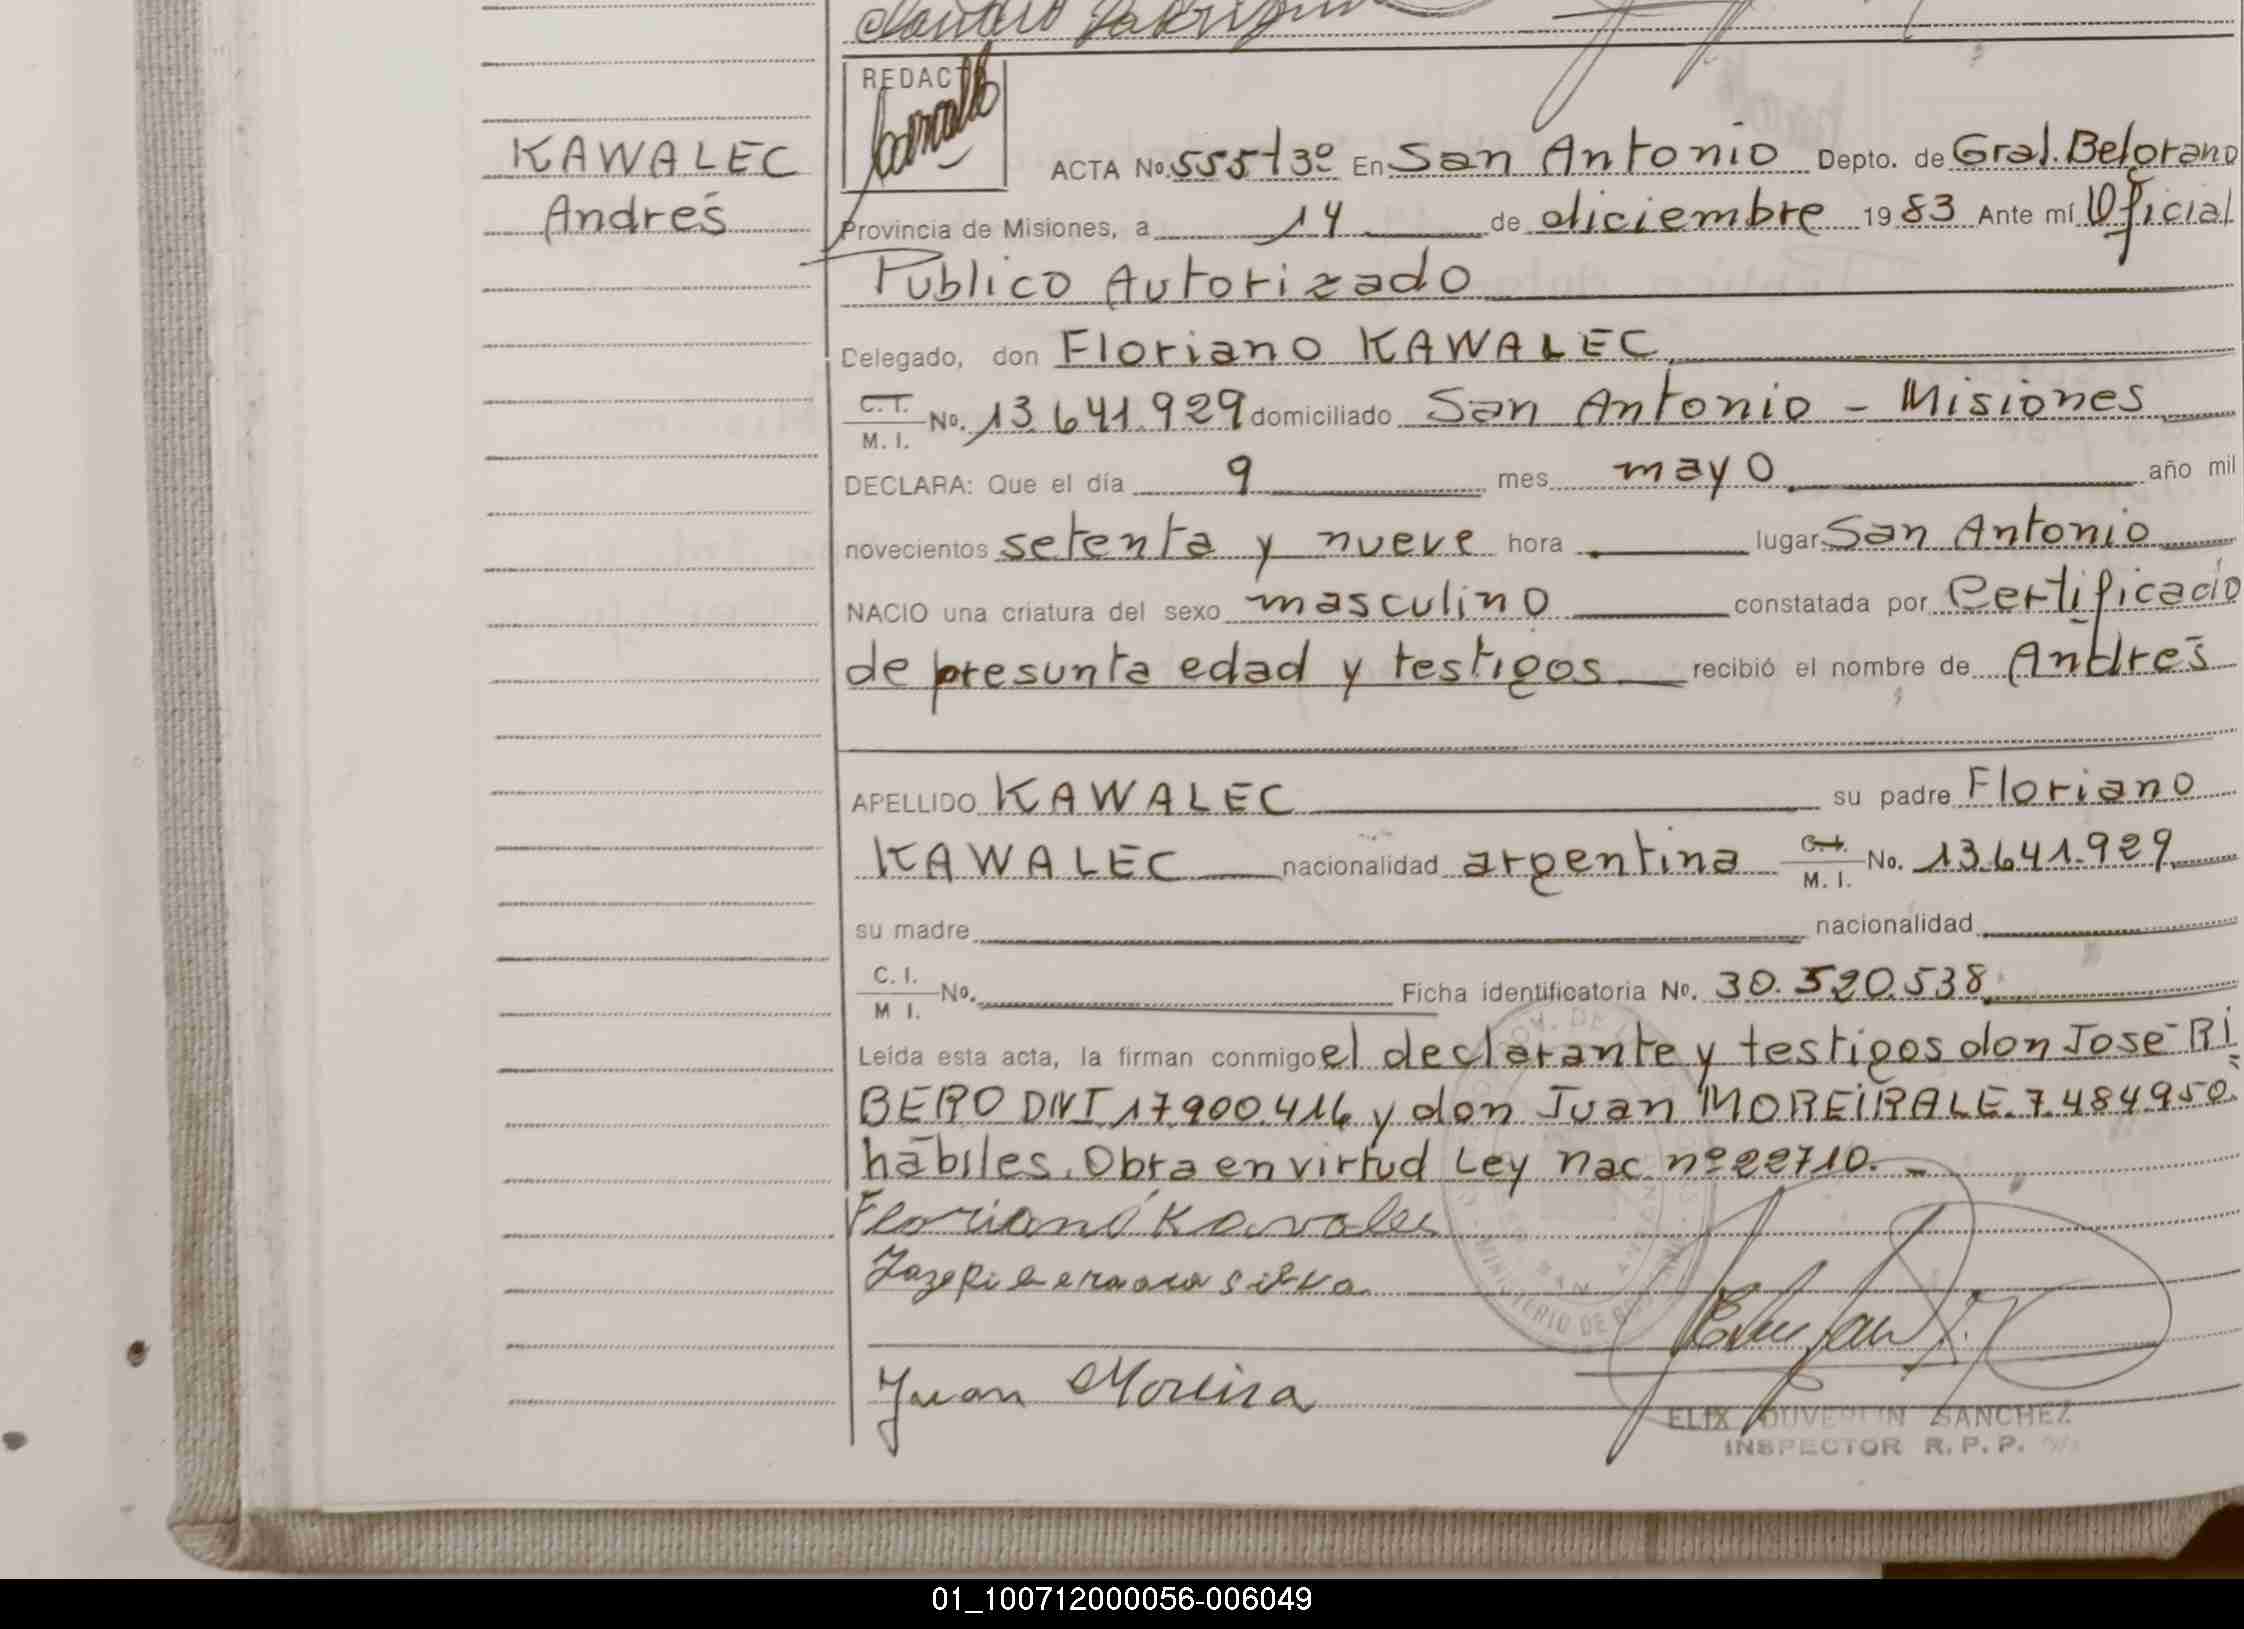 REDAC
KAWALEC
Andrés
ACTA No. 555 t 3º En San Antonio Depto. de Gral. Belgrano
Provincia de Misiones, a 14 de diciembre 1983 Ante mí Oficial
Publico Autorizado
Delegado, don Floriano KAWALEC
C.I.
M. I. No. 13.641.929 domiciliado San Antonio - Misiones
DECLARA: Que el día 9 mes mayo año mil
novecientos setenta y nueve hora lugar San Antonio
NACIO una criatura del sexo masculino constatada por Certificado
de presunta edad y testigos recibió el nombre de Andrés
APELLIDO KAWALEC su padre Floriano
KAWALEC nacionalidad argentina C.I. M. I. No. 13.641.929
su madre nacionalidad
C. I.
M I. No. Ficha identificatoria No. 30.520.538
Leída esta acta, la firman conmigo el declarante y testigos don José RI
BERO DNI 17.900.416 y don Juan MOREIRA LE. 7.484.950.
hábiles. Obra en virtud Ley Nac. nº 22710. -
Floriano Kavalec
Juan Moreira
MINISTERIO DE
ELIX DUVERLIN SANCHEZ
INSPECTOR R. P. P.
01_100712000056-006049